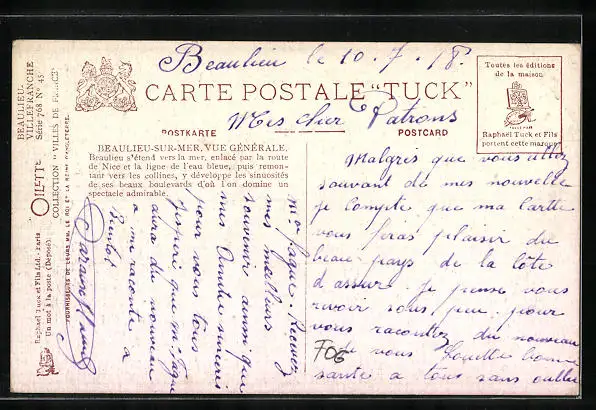 Beaulieu le 10.7.18.
CARTE POSTALE "TUCK"
POSTKARTE
POSTCARD
Mes cher Patrons
Toutes les éditions
de la maison
Raphael Tuck et Fils
portent cette marque
BEAULIEU-SUR-MER, VUE GÉNÉRALE.
Beaulieu s'étend vers la mer, enlacé par la route
de Nice et la ligne de l'eau bleue, puis remon-
tant vers les collines, y développe les sinuosités
de ses beaux boulevards d'où l'on domine un
spectacle admirable.
BEAULIEU-
VILLEFRANCHE
Série 768 No 45
OILETTE
COLLECTION "VILLES DE FRANCE"
Raphael Tuck et Fils Ltd.- Paris
Un mot à la poste (Déposé).
FOURNISSEURS DE LEURS MM. LE ROI ET LA REINE D'ANGLETERRE.
Malgris que vous allez
souvant de mes nouvelle
je compte que ma cartte
vous feras plaisir du
beau pays de la côte
d'assur. je pense vous
revoir sous peu. pour
vous racontez du nouveau
je vous souette bonne
santé a tous sans oublié
ma Jaque. Recevez
mes meilleurs
souvenir ainsi que
mes
pour vous tous
j'espère que ma Jaque
aura du nouveau
a me raconté a
Bientot
706